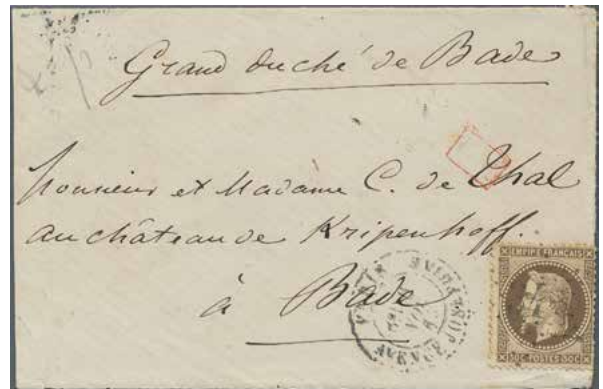 Grand duché de Bade
Monsieur et Madame C. de Thal
au château de Kripenhoff.
à Bade
PARIS
AVENUE JOSEPHINE
EMPIRE FRANÇAIS
30C POSTES 30C